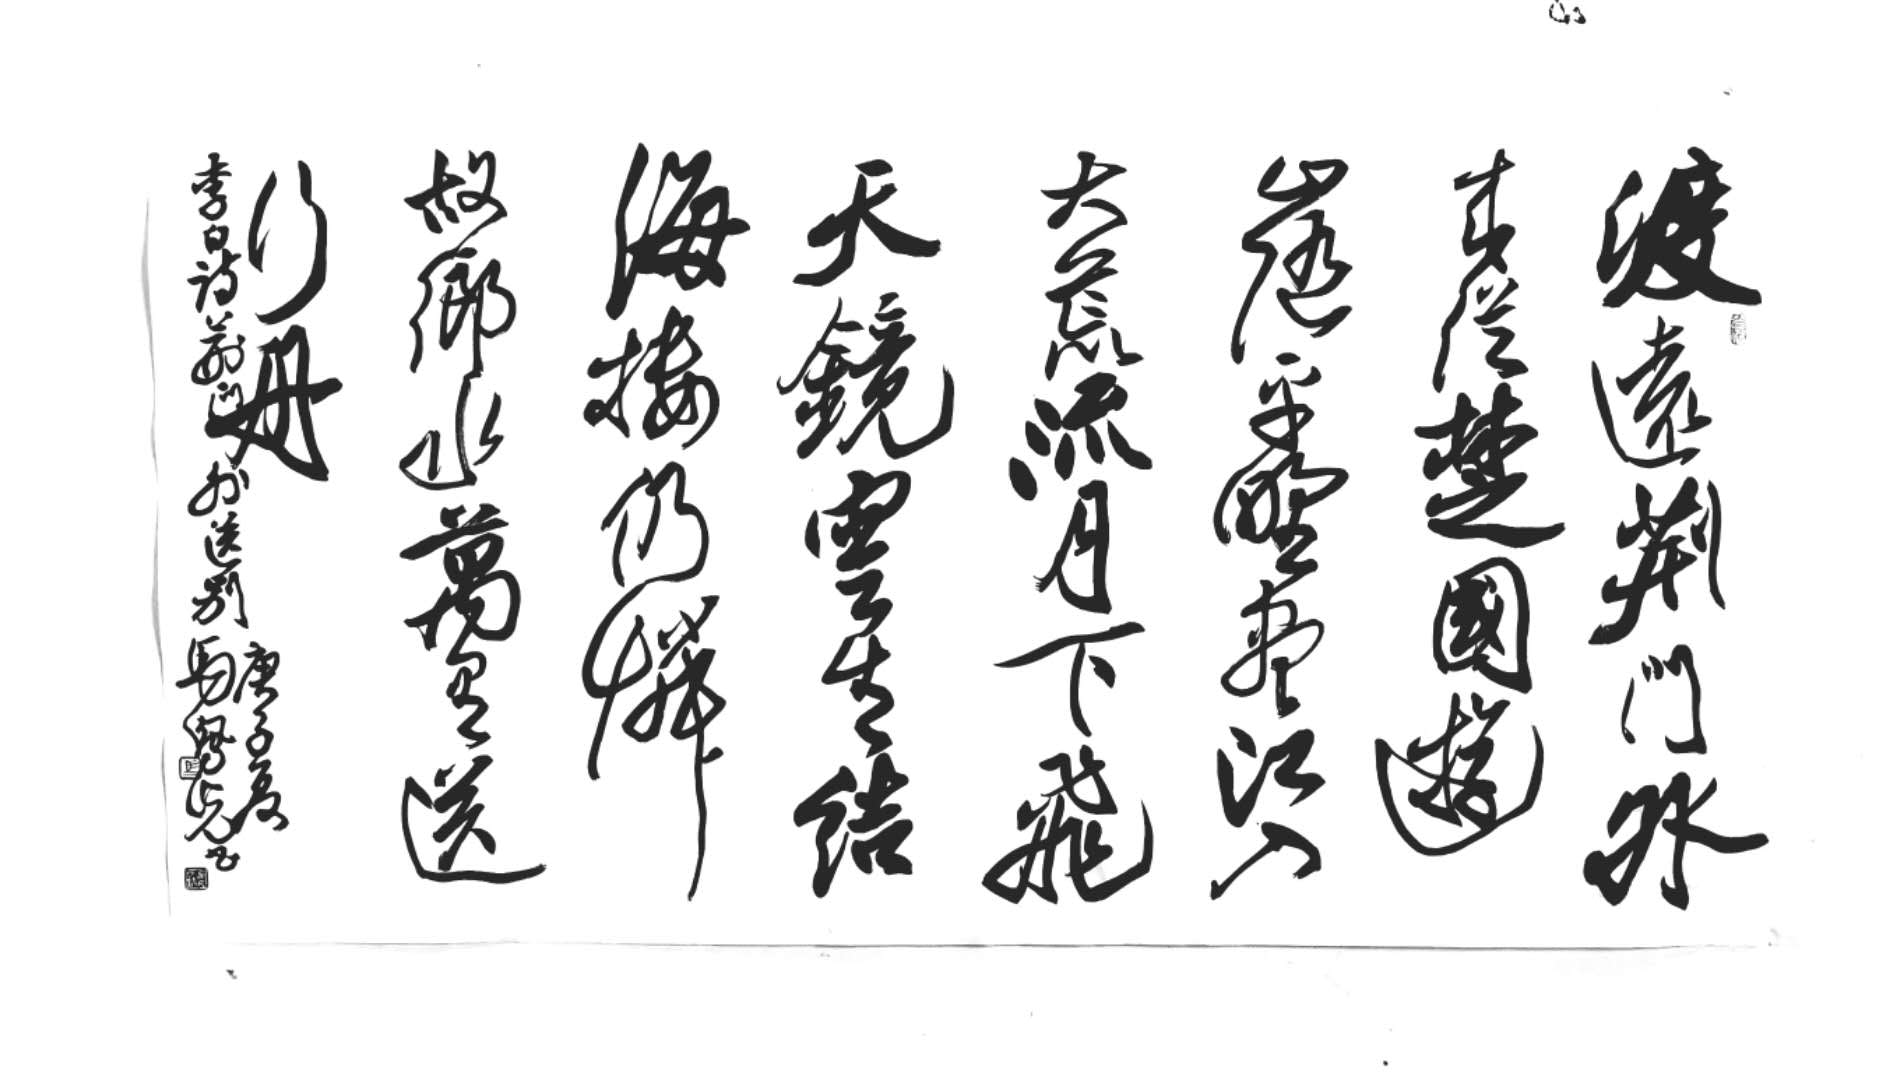 渡遠荊門外
来從楚國遊
山隨平野盡江入
大荒流月下飛
天鏡雲生結
海楼仍憐
故鄉水萬里送
行舟
李白詩荊門外送別
庚子夏
馬